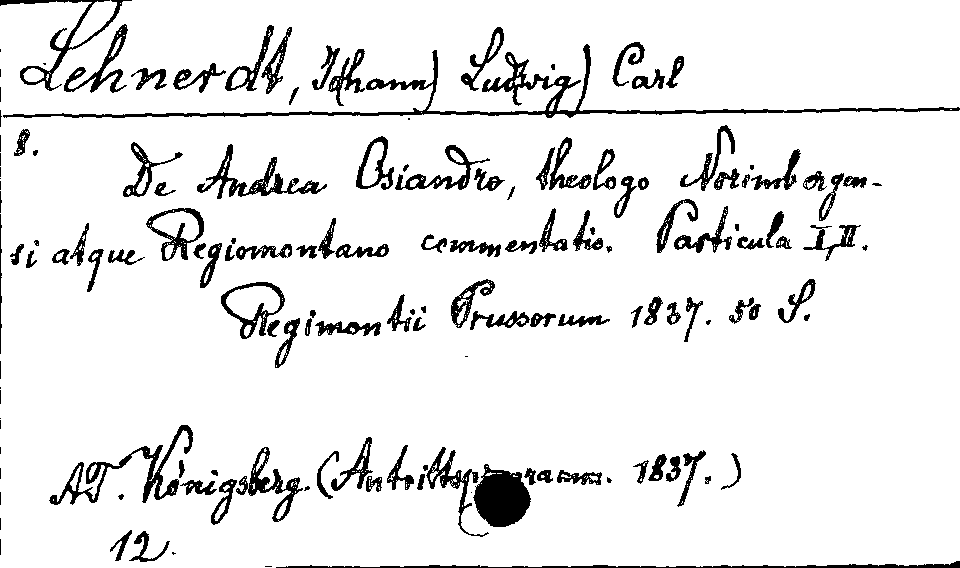 Lehnerdt, Joh(ann) Lud(wig) Carl
8.
De Andrea Osiandro, theologo Norimbergen-
si atque Regiomontano commentatio. Particula I, II.
Regimontii Prussorum 1837. 50 S.
AT. Königsberg. (Antrittsprogramm. 1837.)
12.